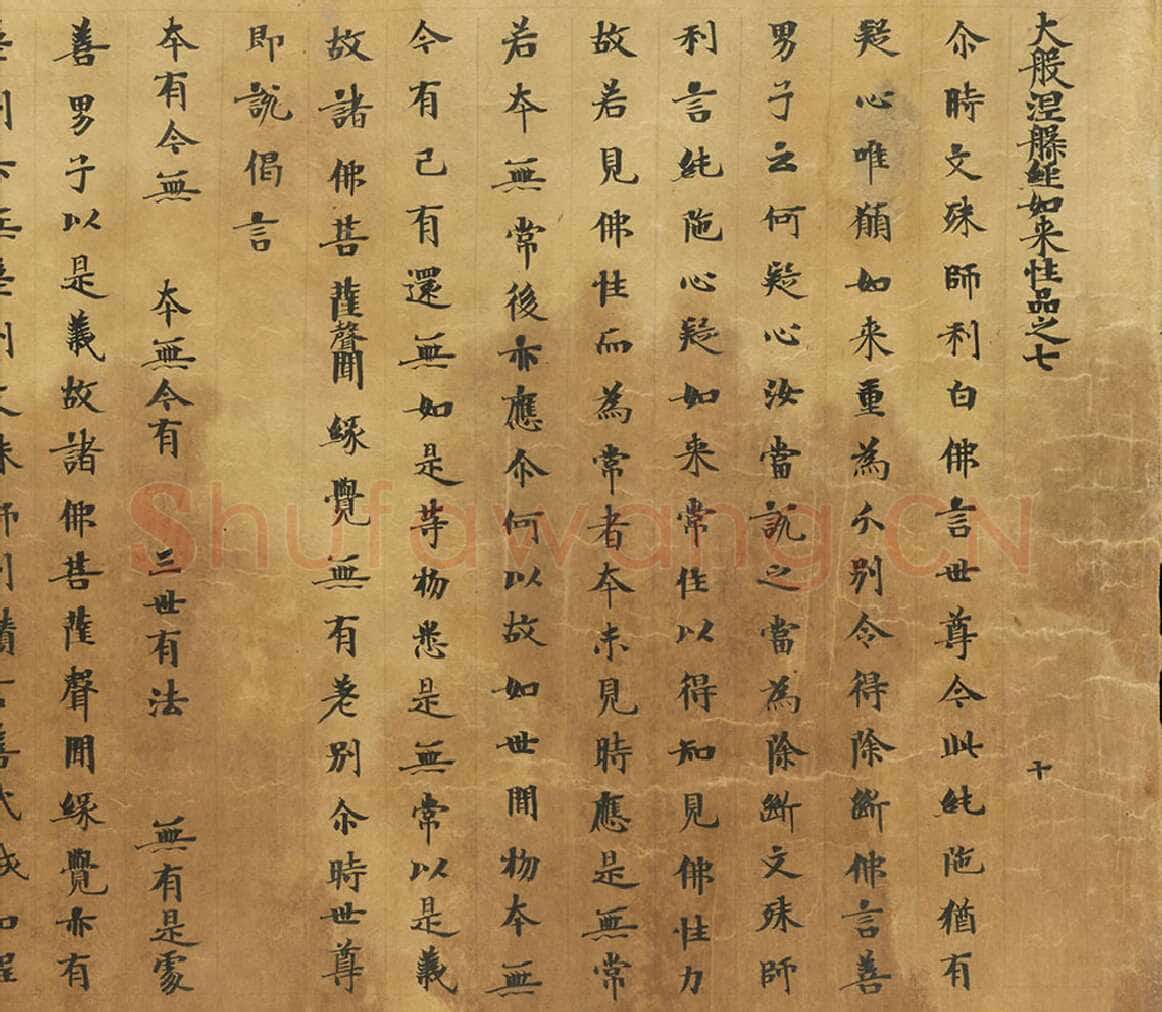 大般涅槃経如来性品之七　十
尒時文殊師利白佛言世尊今此純陁猶有
疑心唯願如来重為分別令得除斷佛言善
男子云何疑心汝當說之當為除斷文殊師
利言純陁心疑如来常住以得知見佛性力
故若見佛性而為常者本未見時應是無常
若本無常後亦應尒何以故如世間物本無
今有已有還無如是等物悉是無常以是義
故諸佛菩薩聲聞緣覺無有差別尒時世尊
即說偈言
本有今無　本無今有　三世有法　無有是處
善男子以是義故諸佛菩薩聲聞緣覺亦有
Shufawang.CN